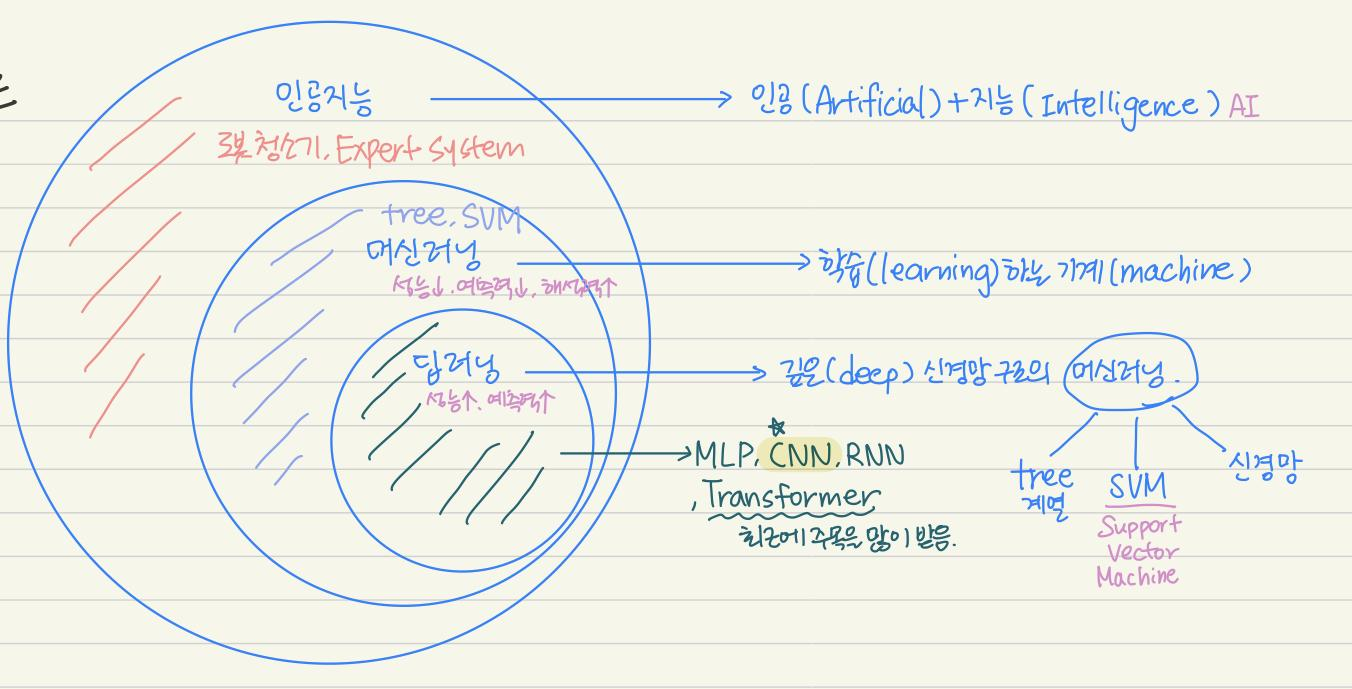 인공지능
인공(Artificial)+지능(Intelligence) AI
로봇 청소기, Expert System
tree, SVM
머신러닝
학습(learning)하는 기계(machine)
성능↓, 예측력↓, 해석력↑
딥러닝
깊은(deep) 신경망 구조의 머신러닝.
성능↑, 예측력↑
MLP, CNN, RNN
, Transformer
최근에 주목을 많이 받음.
tree
계열
SVM
Support
Vector
Machine
신경망